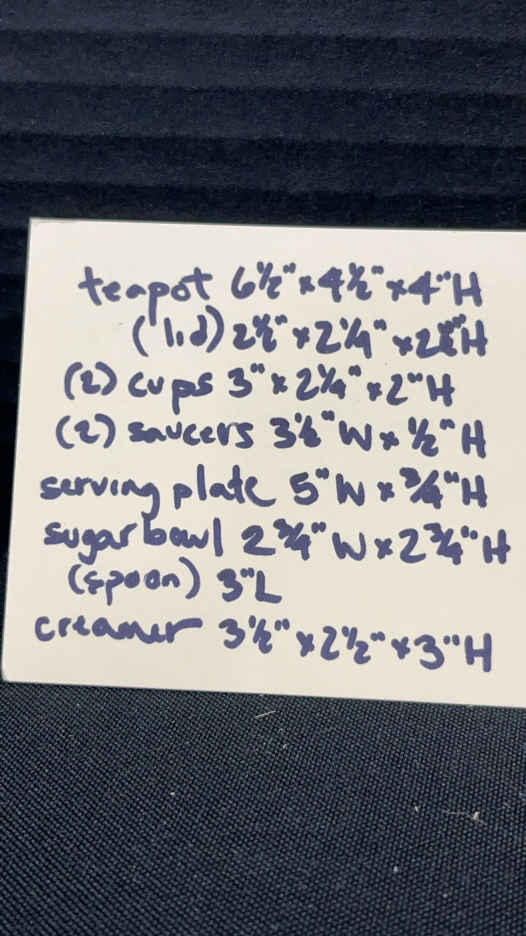 teapot 6½" x 4½" x 4" H
(lid) 2½" x 2¼" x 2 H
(2) cups 3" x 2¼" x 2" H
(2) saucers 3½" W x ½" H
serving plate 5" W x ¾" H
sugar bowl 2¾" W x 2¾" H
(spoon) 3" L
creamer 3½" x 2½" x 3" H